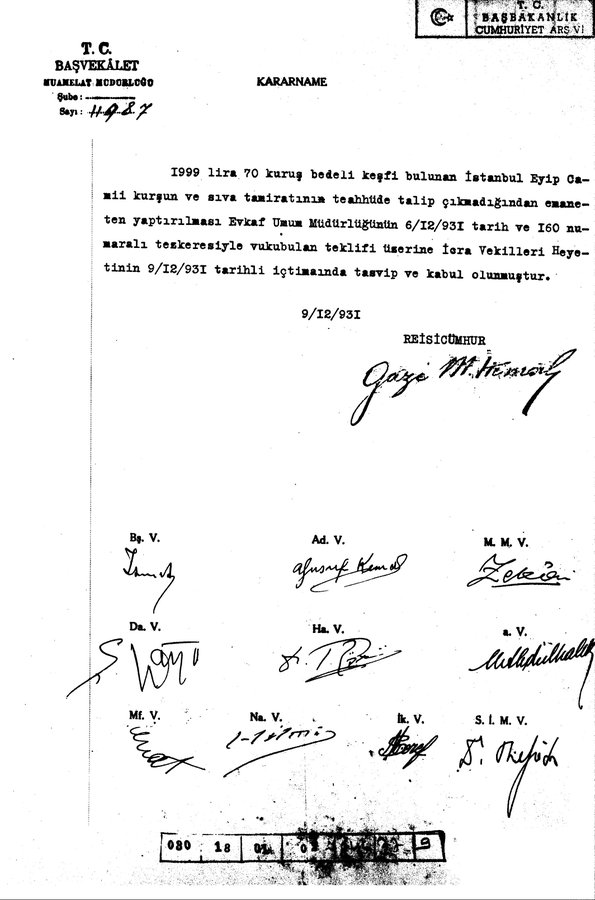 T. C.
BAŞBAKANLIK
CUMHURİYET ARŞİVİ
T. C.
BAŞVEKÂLET
MUAMELAT MÜDÜRLÜĞÜ
Şube:
Sayı: 11987
KARARNAME
I999 lira 70 kuruş bedeli keşfi bulunan İstanbul Eyip Ca-
mii kurşun ve sıva tamiratının teahhüde talip çıkmadığından emane-
ten yaptırılması Evkaf Umum Müdürlüğünün 6/I2/93I tarih ve I60 nu-
maralı tezkeresiyle vukubulan teklifi üzerine İcra Vekilleri Heye-
tinin 9/I2/93I tarihli içtimaında tasvip ve kabul olunmuştur.
9/I2/93I
REİSİCÜMHUR
Gazi M. Kemal
Bş. V. Ad. V. M. M. V.
İsmet Yusuf Kemal Zekâi
Da. V. Ha. V. a. V.
Ş. Kaya Dr. T. Rüştü M. Abdülhalik
Mf. V. Na. V. İk. V. S. İ. M. V.
Esat Hilmi Dr. Refik
030 18 01 02